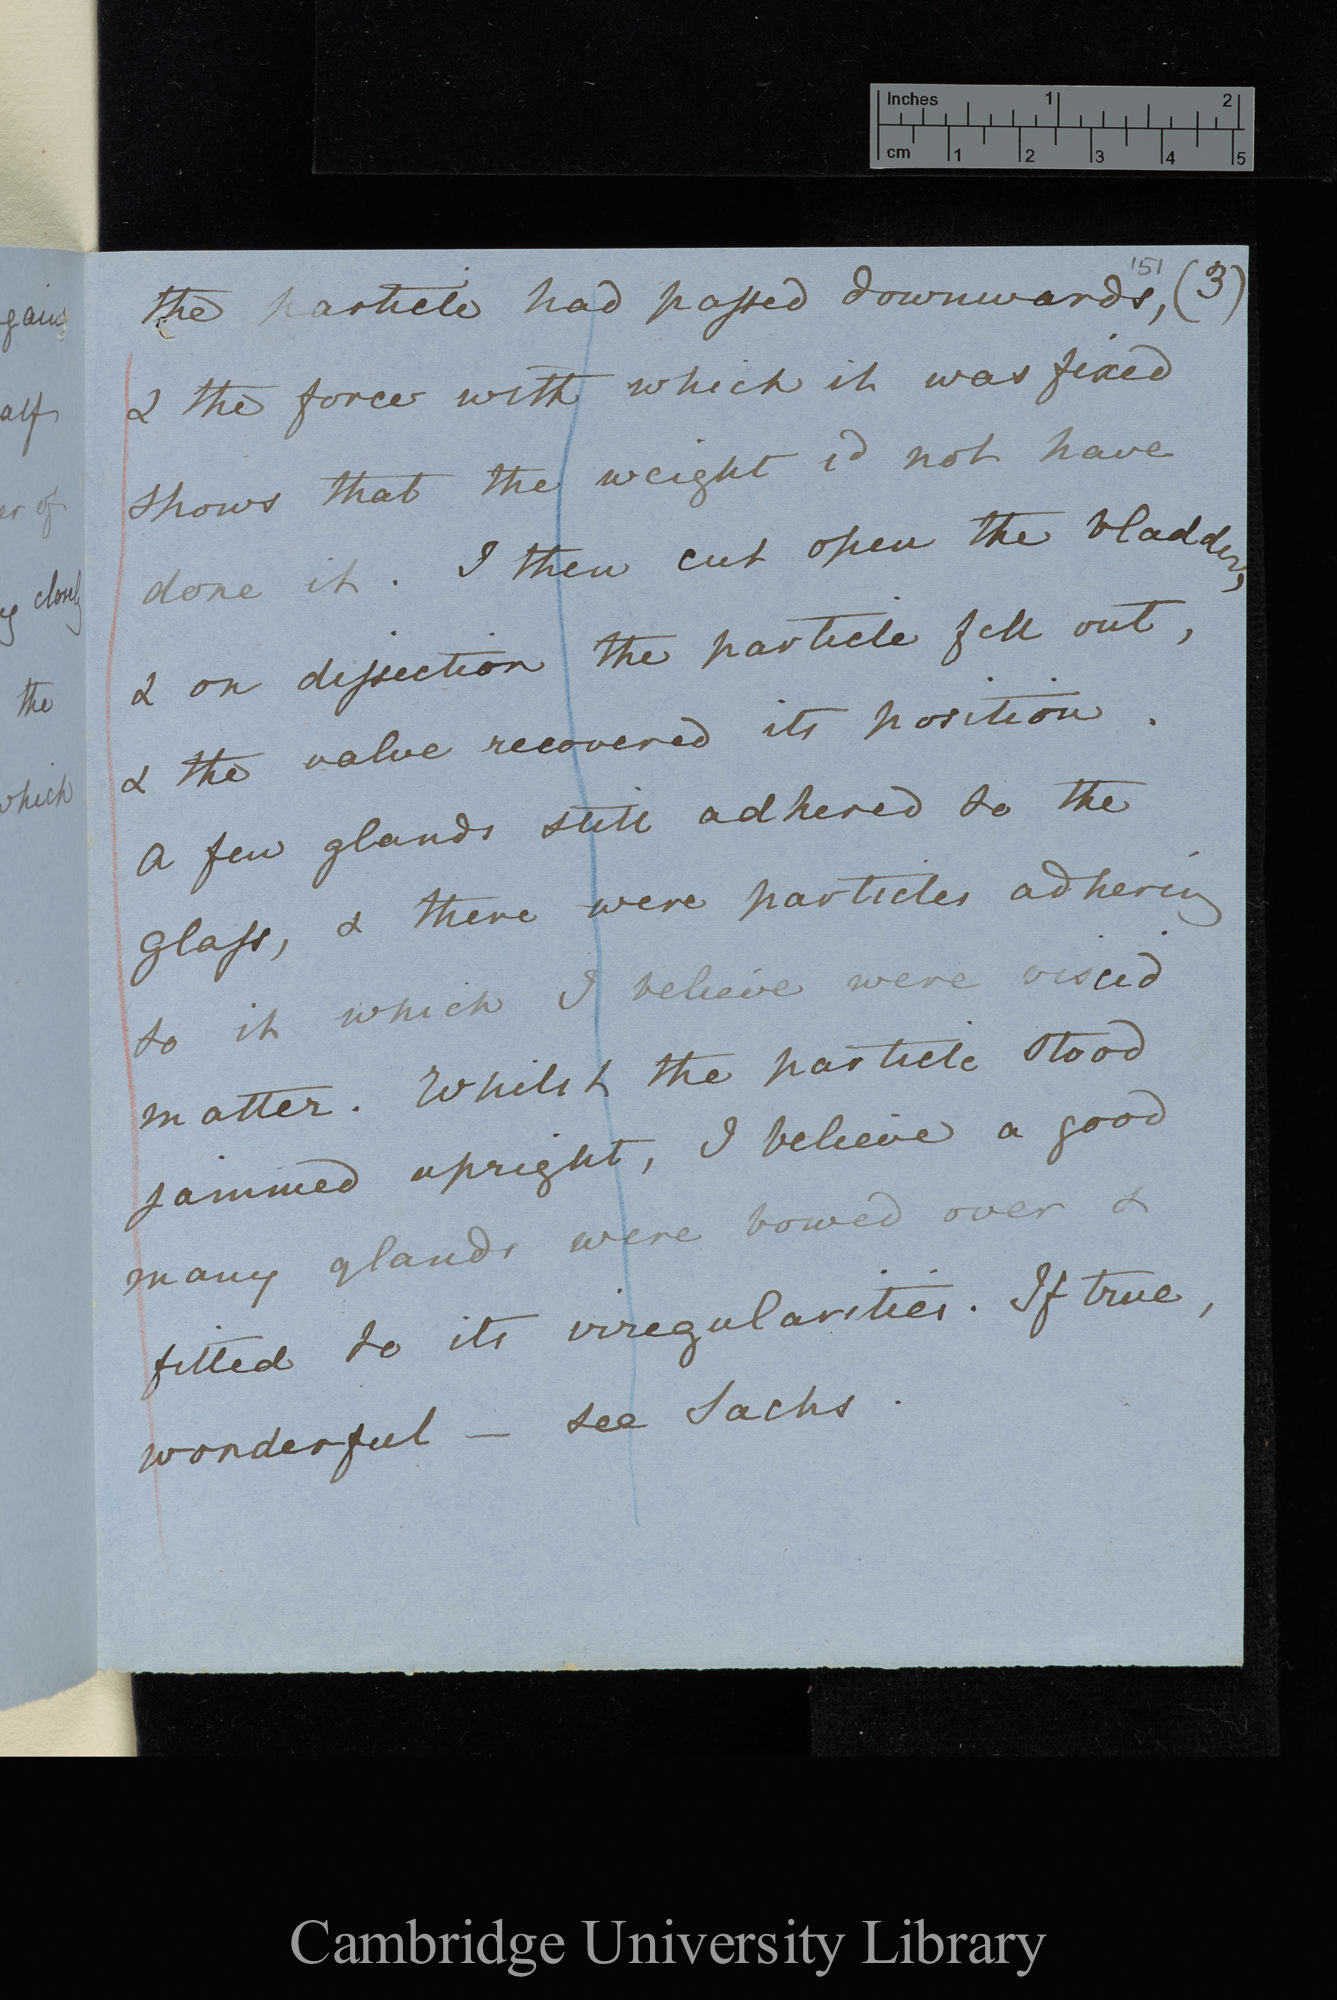 Inches 1 2
cm 1 2 3 4 5
151
the particle had passed downwards, (3)
& the force with which it was fixed
shows that the weight cd not have
done it. I then cut open the bladder,
& on dissection the particle fell out,
& the valve recovered its position.
A few glands still adhered to the
glass, & there were particles adhering
to it which I believe were viscid
matter. Whilst the particle stood
jammed upright, I believe a good
many glands were bowed over &
fitted to its irregularities. If true,
wonderful — see Sachs.
alf
er of
closely
the
which
Cambridge University Library